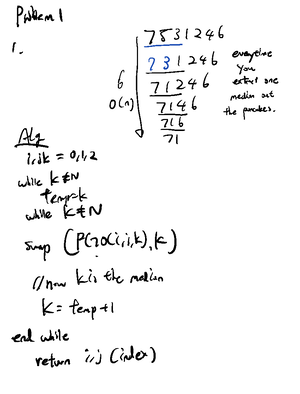 Problem 1
1.
7531246
731246
71246
7146
716
71
6
O(n)
everytime
you
extract one
median out
the process.
Alg
i,j,k = 0,1,2
while k≠N
temp=k
while k≠N
swap (P(i,j,k),k)
//now k is the median
k = temp+1
end while
return i,j (index)